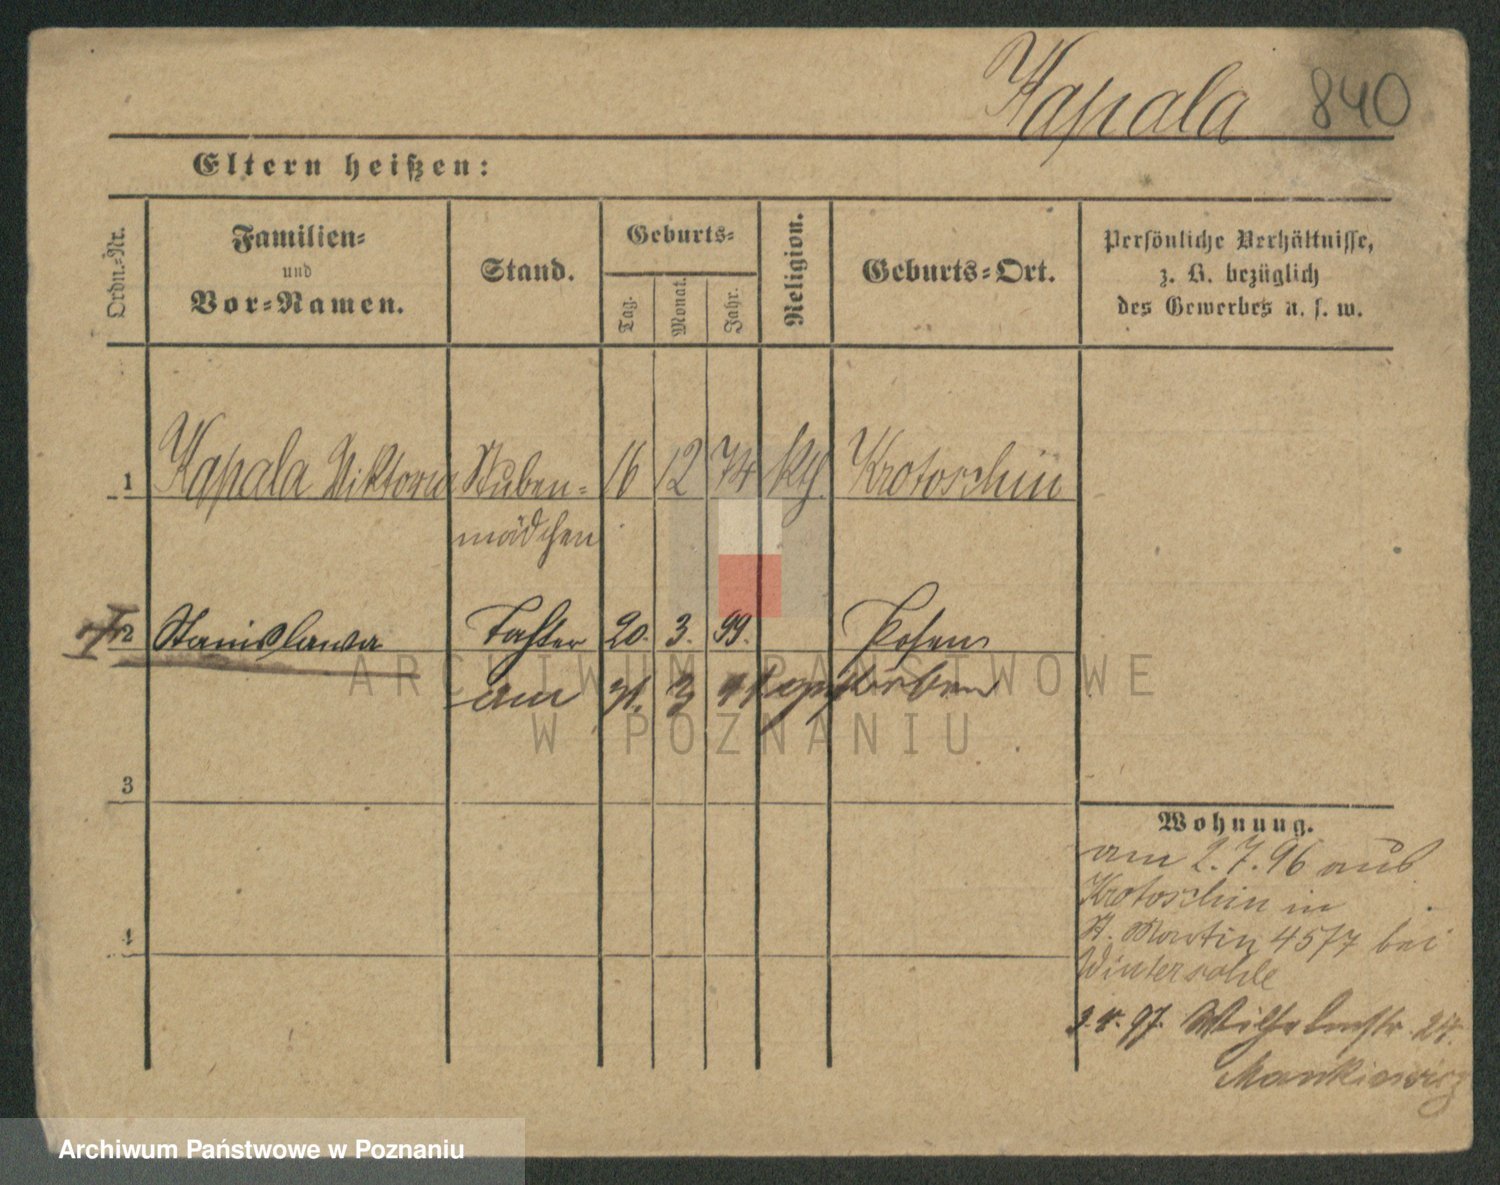 Kapala 840
Eltern heißen:
Ordn.-Nr.
Familien-
und
Vor-Namen.
Stand.
Geburts-
Tag.
Monat.
Jahr.
Religion.
Geburts-Ort.
Persönliche Verhältnisse,
z. B. bezüglich
des Gewerbes u. s. w.
1 Kapala Viktoria Stuben- 16 12 74 kth. Krotoschin
mädchen
2 Stanislawa Tochter 20. 3. 99. Posen
am 31. 3 gestorben
3
4
Wohnung.
am 2.7.96 aus
Krotoschin in
St. Martin 45/7 bei
97. Wilhelmstr. 24.
Mankiewicz
ARCHIWUM PAŃSTWOWE
W POZNANIU
Archiwum Państwowe w Poznaniu